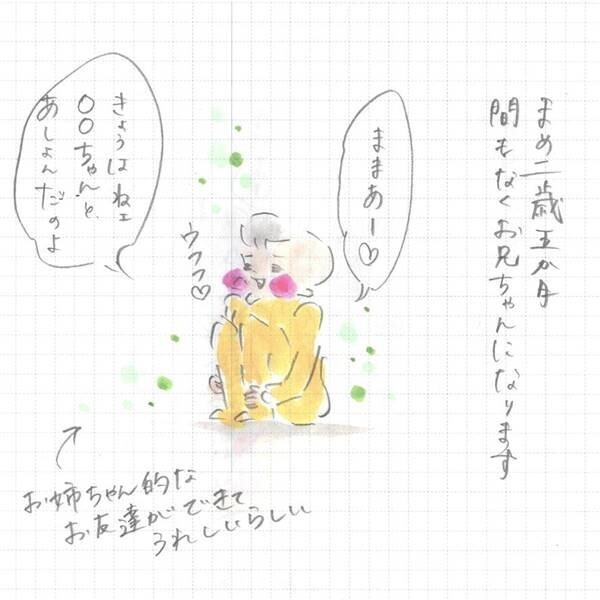 まめ二歳五か月
間もなくお兄ちゃんになります
ままあー♡
きょうはねェ
〇〇ちゃんと、
あしょんだのよ
ウフフ♡
お姉ちゃん的な
お友達ができて
うれしいらしい